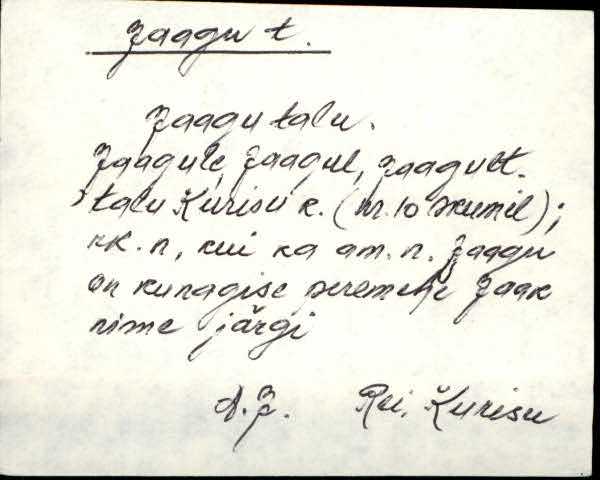 Jaagu t.
Jaagu talu.
Jaagule, Jaagul, Jaagult.
talu Kurisu k. (nr. 10 skeemil);
rk. n, kui ka am. n. Jaagu
on kunagise peremehe Jaak
nime järgi
A.J. Rei, Kurisu